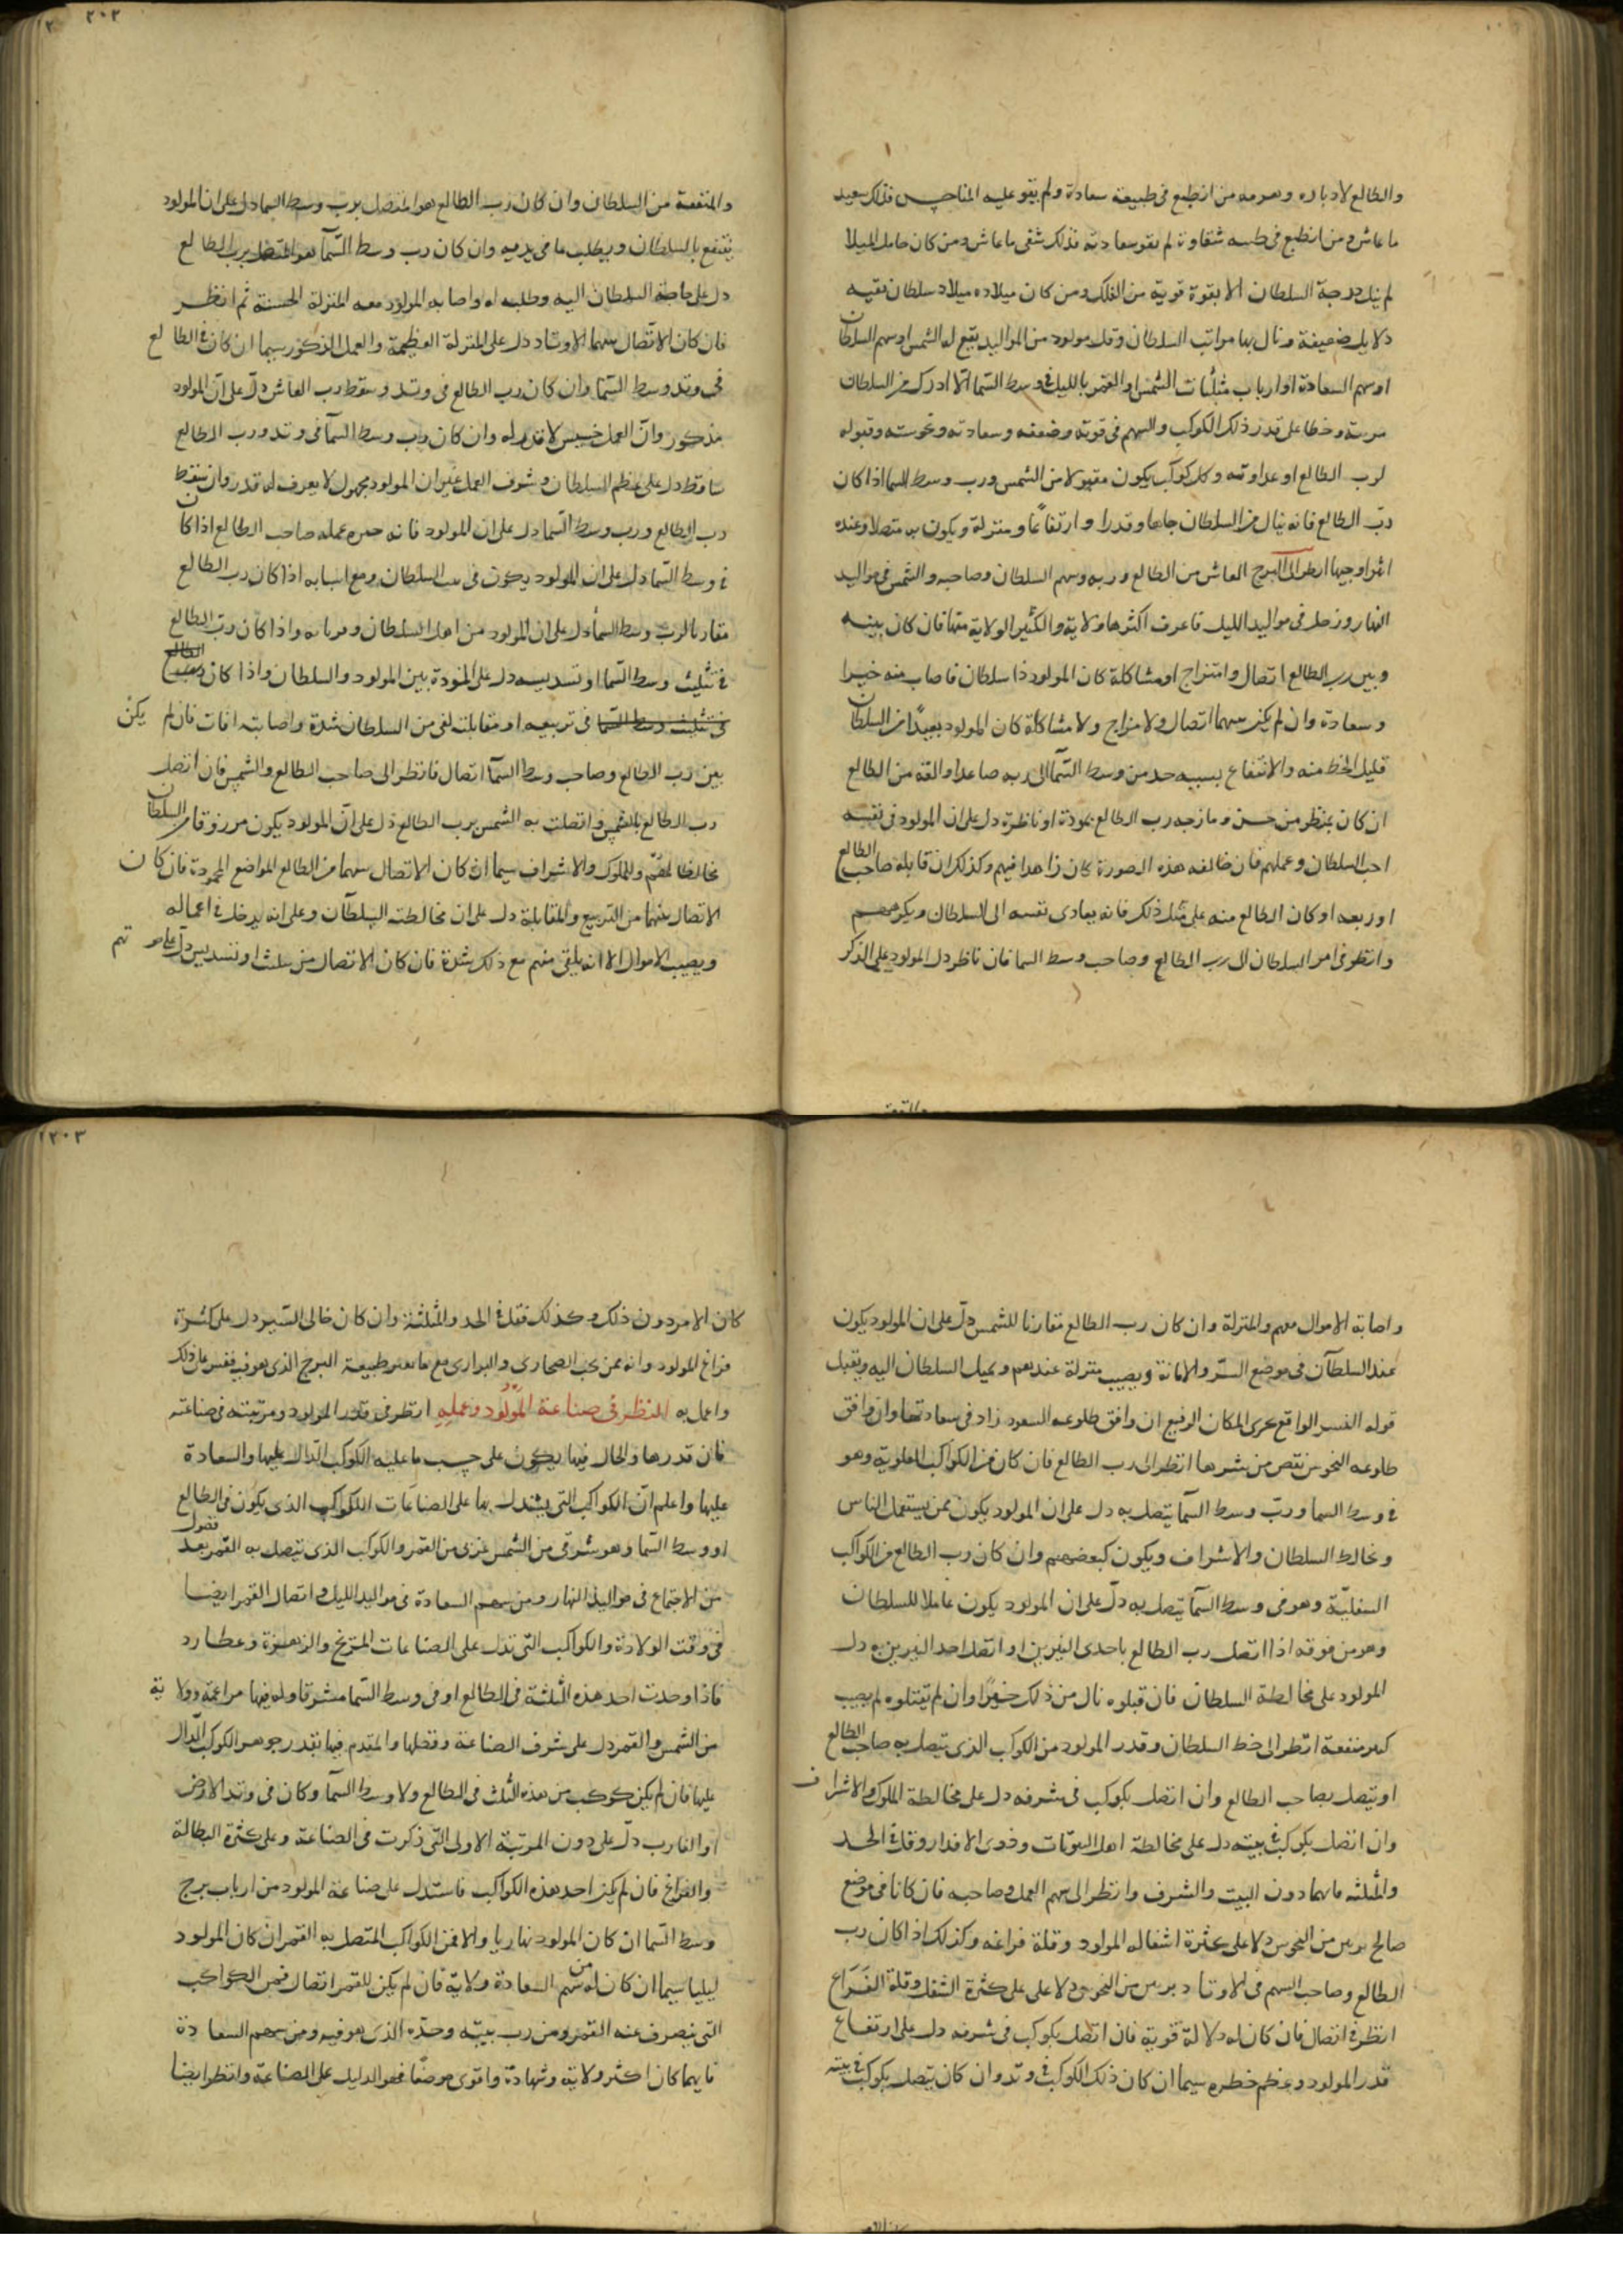 والطالع لادباره وهرمه من انطبع فى طبيعته سعادة ولم يقو عليه المناحس فذلك سعيد
ما عاش ومن انطبع فى طبيعه شقاوة لم يقو سعادته فذلك شقى ما عاش ومن كان حامل الميلاد
لم ينل درجة السلطان الا بقوة قوية من الفلك ومن كان ميلاده ميلاد سلطان نفيه
دلايل ضعيفة ونال بها مراتب السلطان وقل مولود من المواليد يقع له الشمس او سهم السلطان
او سهم السعادة او ارباب مثلثات الشمس او القمر بالليل فى وسط السما الا ادرك من السلطان
مرتبة وحظا على قدر ذلك الكوكب والسهم فى قوته وضعفه وسعادته ونحوسته وقبوله
لرب الطالع او عداوته وكل كوكب يكون مقبولا من الشمس ورب وسط السما اذا كان
رب الطالع فانه ينال من السلطان جاها وقدرا وارتفاعا ومنزلة ويكون به متصلا وعنده
اثرا وجيها انظر الى البرج العاشر من الطالع وربه وسهم السلطان وصاحبه والشمس فى مواليد
النهار وزحل فى مواليد الليل فاعرف اكثرها ولاية والكثير الولاية منها فان كان بينه
وبين رب الطالع اتصال وامتزاج او مشاكلة كان المولود ذا سلطان فاصاب منه خيرا
وسعادة وان لم يكن بينهما اتصال ولا مزاج ولا مشاكلة كان المولود بعيدا من السلطان
قليل الحظ منه والانتفاع بسببه خذ من وسط السما الى ربه صاعدا والقه من الطالع
ان كان بمنظر من حسن ومازجه رب الطالع بمودة او ناظرة دل على ان المولود فى نفسه
احب السلطان وعملهم فان خالفه هذه الصورة كان زاهدا فيهم وكذلك ان قابله صاحب الطالع
او ربعه او كان الطالع منه على مثل ذلك فانه يعادى نفسه الى السلطان ويكرههم
وانظر فى امر السلطان الى رب الطالع وصاحب وسط السما فان ناظر دل المولود على الذكر
والمنفعة من السلطان وان كان رب الطالع هو المتصل برب وسط السما دل على ان المولود
ينتفع بالسلطان ويطلب ما فى يديه وان كان رب وسط السمآ هو المتصل برب الطالع
دل على حاجة السلطان اليه وطلبه له واصابه المولود معه المنزلة الحسنة ثم انظر
فان كان الاتصال بينهما الاوتاد دل على المنزلة العظيمة والعمل المذكور سيما ان كان فى الطالع
فى وتد وسط السما وان كان رب الطالع فى وتد وسقط رب العاشر دل على ان المولود
مذكور وان العمل خسيس لا قدر له وان كان رب وسط السمآ فى وتد ورب الطالع
ساقط دل على عظم السلطان وشرف العمل غير ان المولود مجهول لا يعرف له قدر وان سقط
رب الطالع ورب وسط السما دل على ان المولود فانه عمله صاحب الطالع اذا كان
فى وسط السما دل على ان المولود يكون فى بيت السلطان ومع اسبابه اذا كان رب الطالع
مقارنا لرب وسط السما دل على ان المولود من اهل السلطان وقرباه واذا كان رب الطالع
فى تثليث وسط السما او تسديسه دل على المودة بين المولود والسلطان واذا كان رب الطالع
فى تثليث وسط السما فى تربيعه او مقابلته لقى من السلطان شدة واصابته افات فان لم يكن
بين رب الطالع وصاحب وسط السمآ اتصال فانظر الى صاحب الطالع والشمس فان اتصل
رب الطالع بالشمس او اتصلت به الشمس برب الطالع دل على ان المولود يكون مرزوقا من السلطان
مخالطا لهم والملوك والاشراف سيما ان كان الاتصال بينهما من الطالع المواضع المحمودة فان كان
الاتصال بينهما من التربيع والمقابلة دل على ان مخالطته السلطان وعلى انه يدخل فى اعماله
ويصيب الاموال الا انه يلقى منهم مع ذلك شدة فان كان الاتصال من تثليث او تسديس دل على
واصابة الاموال معهم والمنزلة وان كان رب الطالع مقارنا للشمس دل على ان المولود يكون
عند السلطان فى موضع السر والامانة ويصيب منزلة عندهم ويميل السلطان اليه ويقبل
قوله النسر الواقع مجرى المكان الرفيع ان وافق طلوعه السعود زاد فى سعادتها وان وافق
طلوعه النحوس نقص من شرها انظر الى رب الطالع فان كان من الكواكب العلوية وهو
فى وسط السما ورب وسط السمآ يتصل به دل على ان المولود يكون ممن يستعمل الناس
ويخالط السلطان والاشراف ويكون كبعضهم وان كان رب الطالع من الكواكب
السفلية وهو فى وسط السمآ يتصل به دل على ان المولود يكون عاملا للسلطان
وهو من فوقه اذا اتصل رب الطالع باحدى النيرين او اتصل احد النيرين به دل
المولود على مخالطة السلطان فان قبلوه نال من ذلك خيرا وان لم يقبلوه لم يصب
كبير منفعة انظر الى حظ السلطان وقدر المولود من الكواكب الذى يتصل به صاحب الطالع
او يتصل بصاحب الطالع وان اتصل بكوكب فى شرفه دل على مخالطة الملوك والاشراف
وان اتصل بكوكب فى بيته دل على مخالطة اهل البيوتات وذوى الاقدار وقل فى الحد
والمثلثه فانهما دون البيت والشرف وانظر الى سهم العمل وصاحبه فان كانا فى موضع
صالح برئين من النحوس دلا على كثرة اشغال المولود وقلة فراغه وكذلك اذا كان رب
الطالع وصاحب السهم فى الاوتاد برئين من النحوس دلا على على كثرة الشغل وقلة الفراغ
انظر فى اتصال فان كان له دلالة قوية فان اتصل بكوكب فى شرفه دل على ارتفاع
قدر المولود وعظم خطره سيما ان كان ذلك الكوكب فى وتد وان كان يتصل بكوكب فى بيته
كان الامر دون ذلك وكذلك فقل فى الحد والمثلثة وان كان خالى السير دل على كثرة
فراغ المولود وانه ممن يحب الصحارى والبوارى مع ما هو طبيعة البرج الذى هو فيه فقس على ذلك
واعمل به النظر فى صناعة المولود وعمله انظر فى قدر المولود ومرتبته فى صناعته
فان قدرها والحال فيها يكون على حسب ما عليه الكوكب الدال عليها والسعادة
عليها واعلم ان الكواكب التى يستدل بها على الصناعات الكوكب الذى يكون فى الطالع
او وسط السما وهو شرقى من الشمس غربى من القمر والكوكب الذى يتصل به القمر بعد فضول
من الاجتماع فى مواليد النهار ومن سهم السعادة فى مواليد الليل واتصال القمر ايضا
فى وقت الولادة والكواكب التى تدل على الصناعات المريخ والزهرة وعطارد
فاذا وجدت احد هذه الثلثة فى الطالع او فى وسط السما مشرقا وله فيها مزاعمة وولاية
من الشمس والقمر دل على شرف الصناعة وفضلها والمتقدم فيها بقدر جوهر الكوكب الدال
عليها فان لم يكن كوكب من هذه الثلث فى الطالع ولا وسط السمآ وكان فى وتد الارض
او الغارب دل على دون المرتبة الاولى التى ذكرت فى الصناعة وعلى كثرة البطالة
والفراغ فان لم يكن احد هذه الكواكب فاستدل على صناعة المولود من ارباب برج
وسط السما ان كان المولود نهاريا والا فمن الكواكب المتصل به القمر ان كان المولود
ليليا سيما ان كان له من سهم السعادة ولاية فان لم يكن للقمر اتصال فمن الكواكب
التى ينصرف عنه القمر ومن رب بيته وحده الذى هو فيه ومن سهم السعادة
فايهما كان اكثر ولاية وشهادة واقوى موضعا فهو الدليل على الصناعة وانظر ايضا